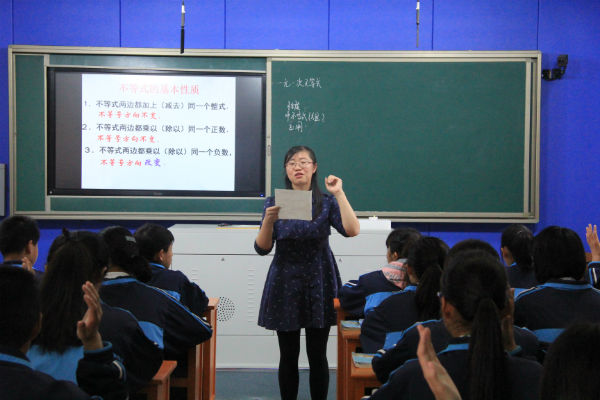 不等式的基本性质
1、不等式两边都加上（减去）同一个整式，
不等号方向不变．
2、不等式两边都乘以（除以）同一个正数，
不等号方向不变．
3、不等式两边都乘以（除以）同一个负数，
不等号方向改变．
一元一次不等式